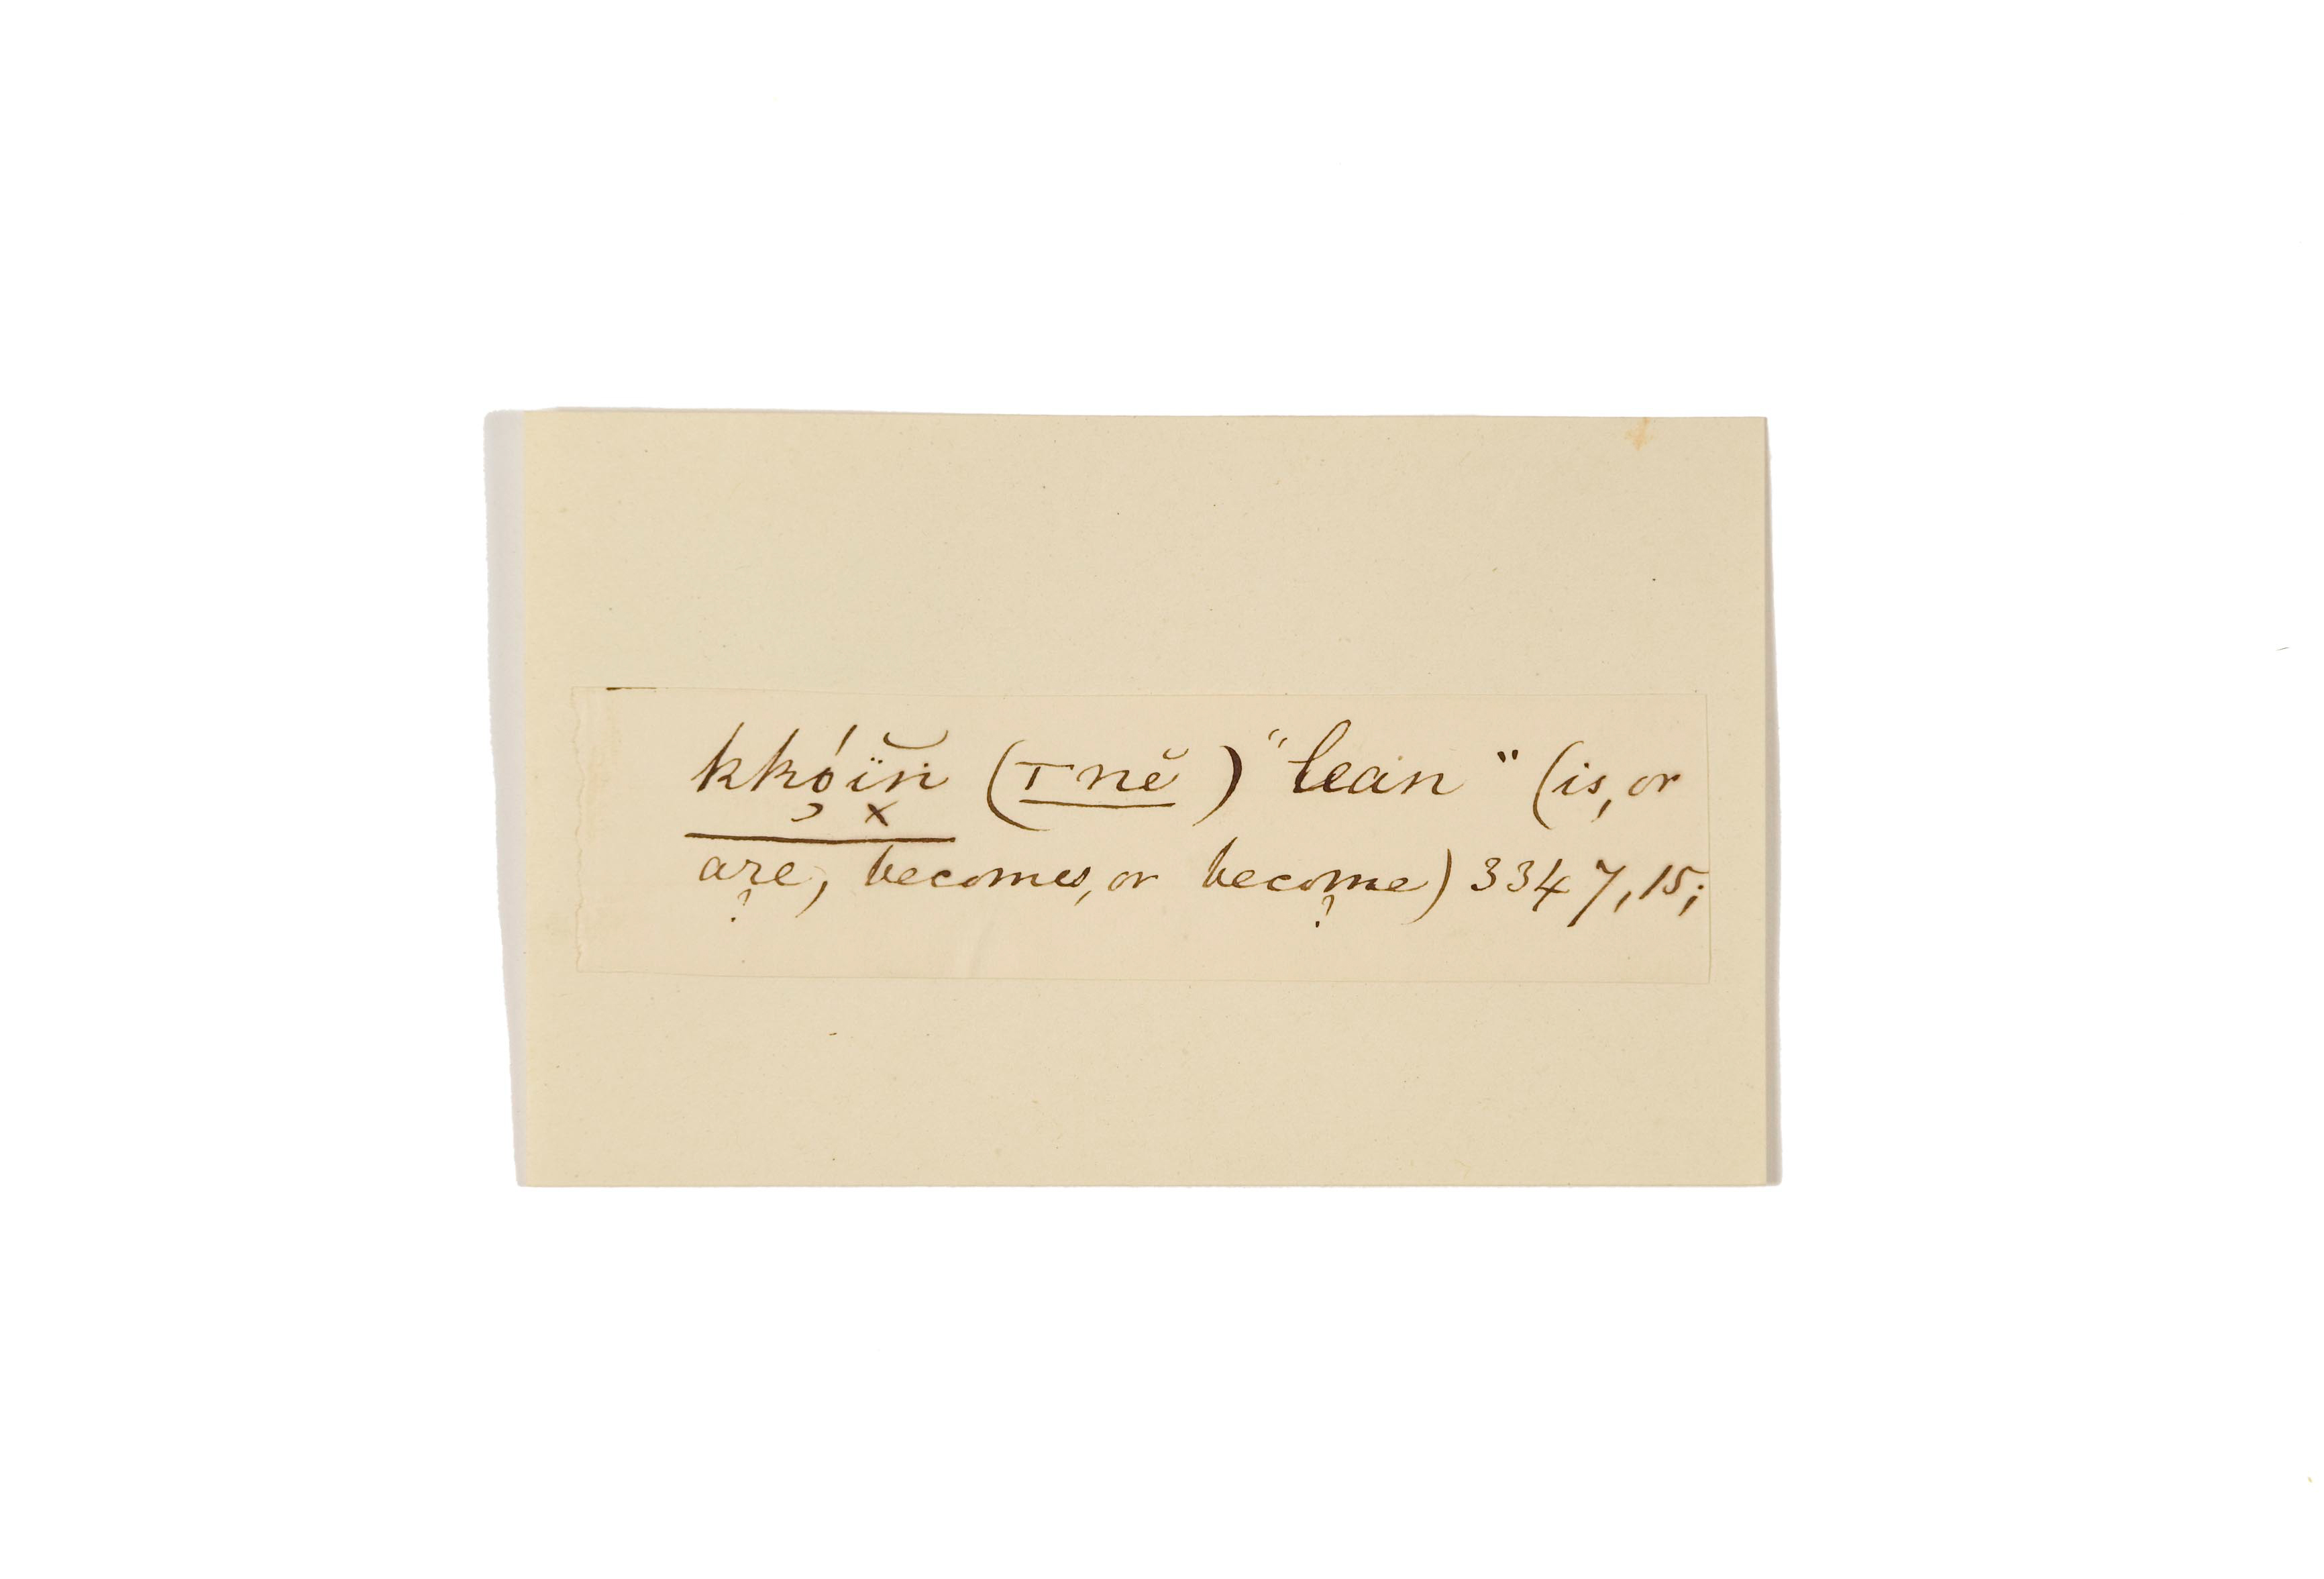 kkóïn̆ (ꞮnĔ) "lean" (is, or
are, becomes, or become) 3347, 15;
? ?